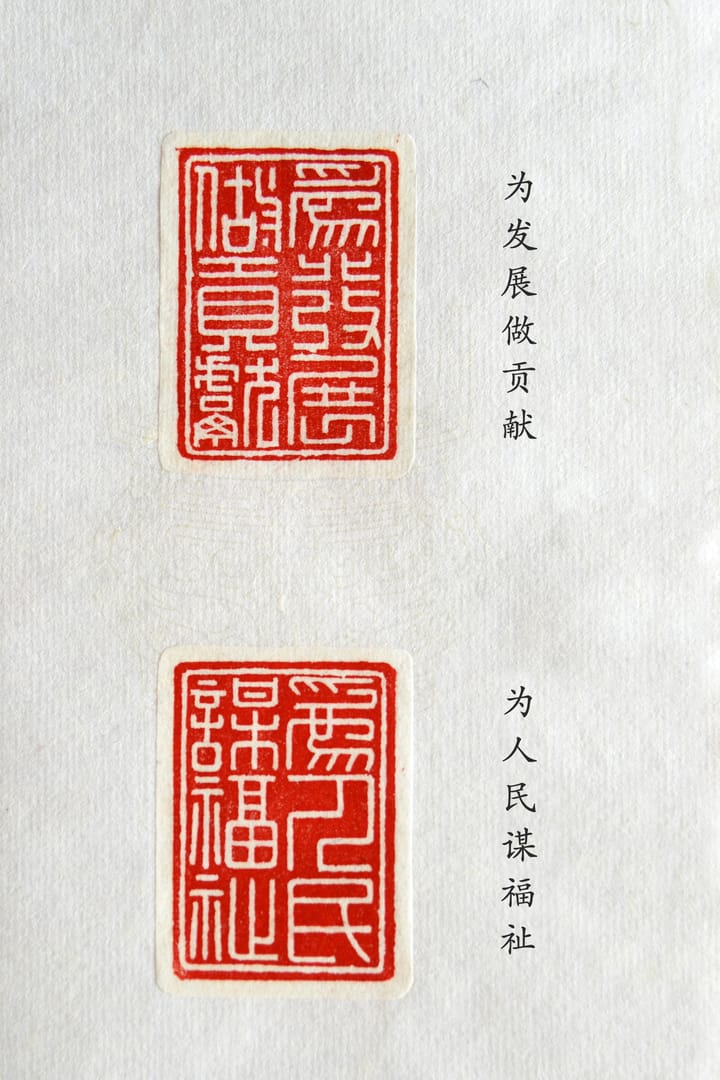 爲發展
做貢獻
为发展做贡献
爲人民
謀福祉
为人民谋福祉